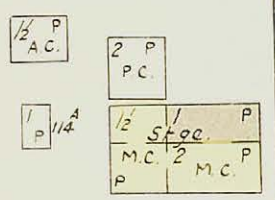 1½ P
A.C.
2 P
P.C.
1
P
114 A
1½ 1 P
Stge.
M.C. 2 P
P M.C.